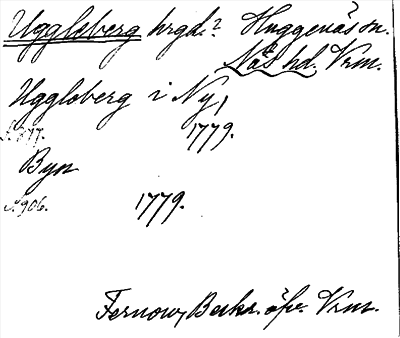 Uggleberg hrgd.? Huggenäs sn.
Näs hd. Vrm.
Uggloberg i Ny,
S. 877. 1779.
Byn
S. 906. 1779.
Fernow, Beskr. öfv. Vrm.